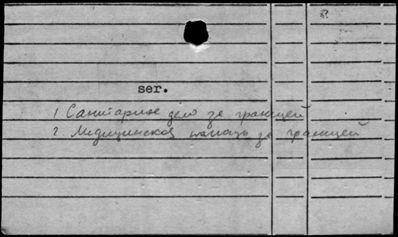 ser.
1 Санитарное дело за границей
2 Медицинская помощь за границей